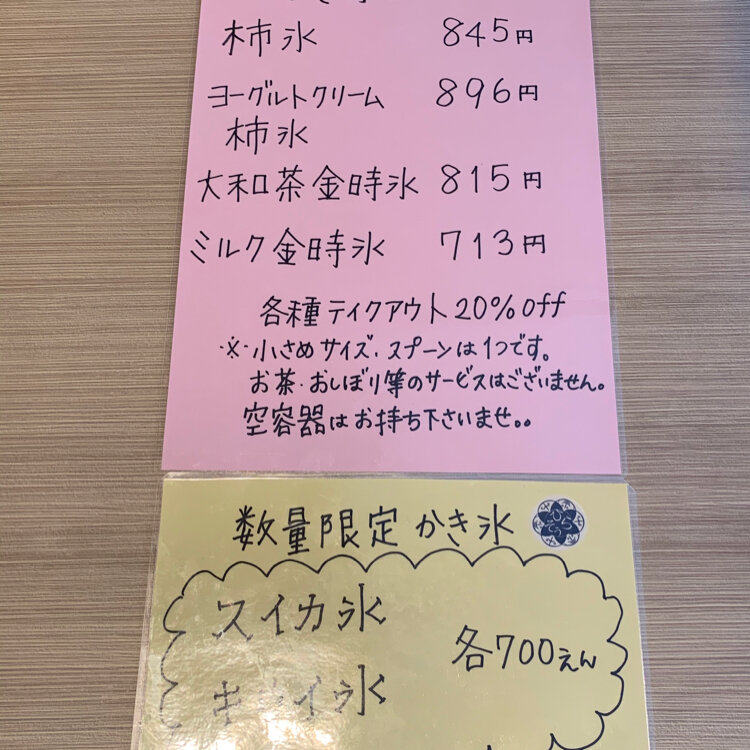 柿氷 845円
ヨーグルトクリーム 896円
柿氷
大和茶金時氷 815円
ミルク金時氷 713円
各種テイクアウト20%off
※小さめサイズ・スプーンは1つです。
お茶・おしぼり等のサービスはございません。
空容器はお持ち下さいませ。。
数量限定 かき氷
スイカ氷
各700えん
キウイ氷